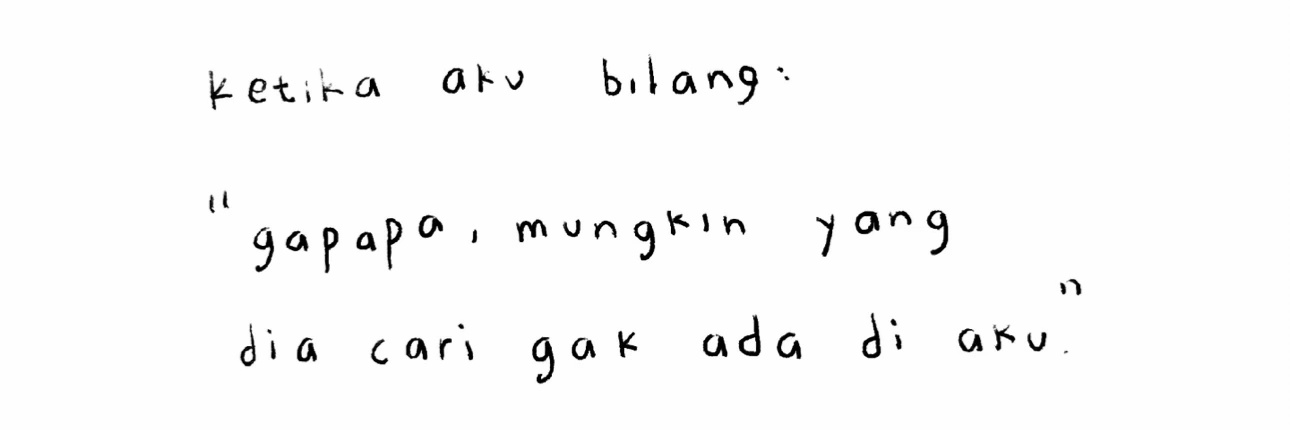 ketika aku bilang:
"gapapa, mungkin yang
dia cari gak ada di aku."